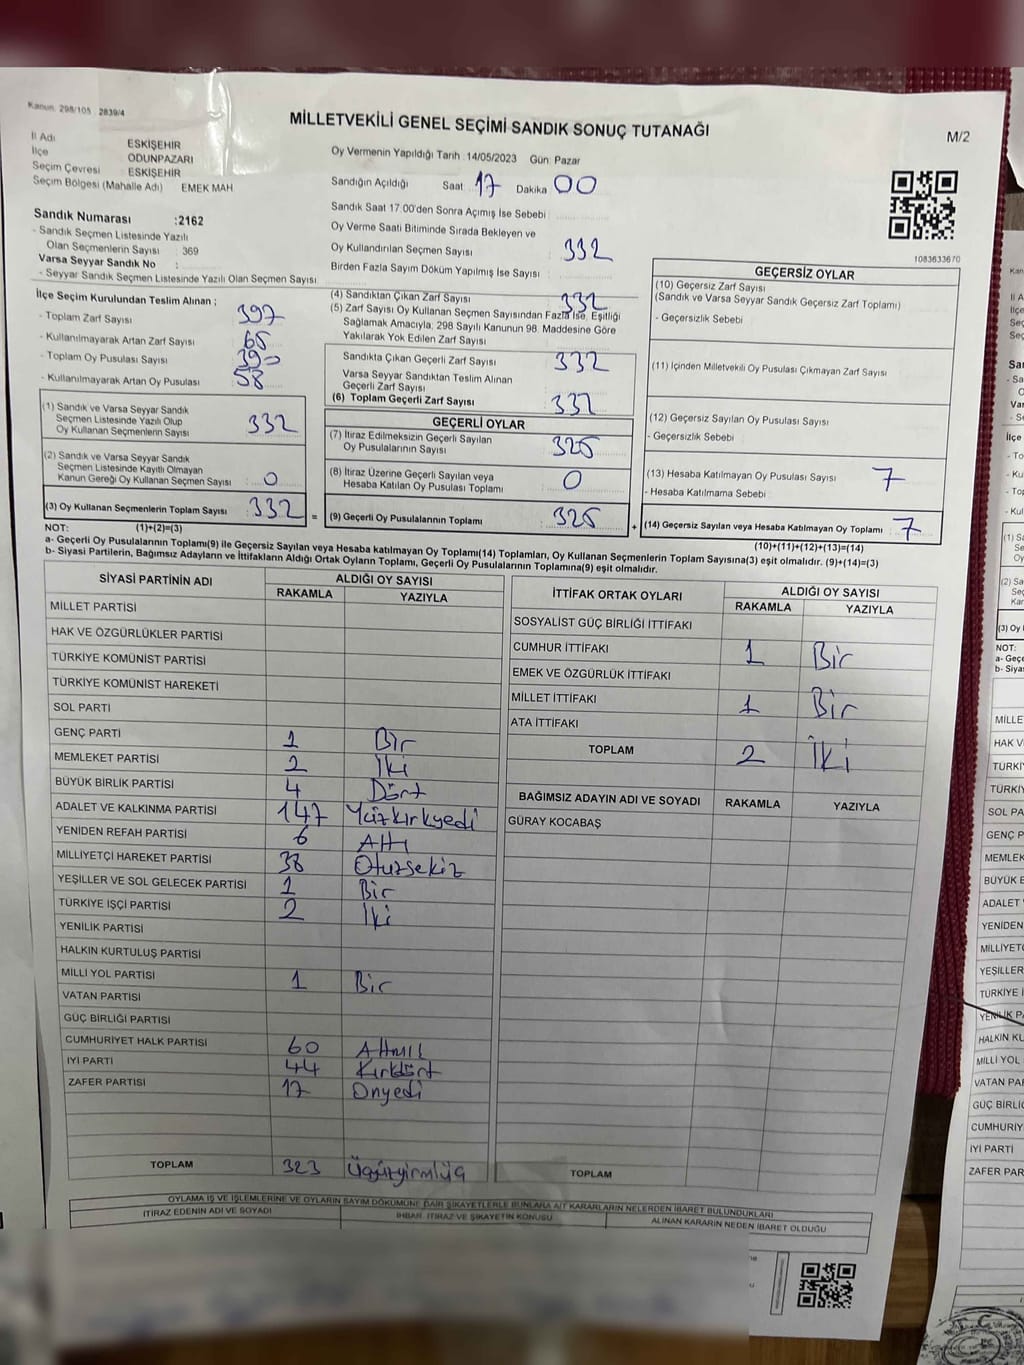 Kanun: 298/105 2839/4
MİLLETVEKİLİ GENEL SEÇİMİ SANDIK SONUÇ TUTANAĞI
M/2
İl Adı ESKİŞEHİR
İlçe ODUNPAZARI
Seçim Çevresi ESKİŞEHİR
Seçim Bölgesi (Mahalle Adı) EMEK MAH
Sandık Numarası :2162
- Sandık Seçmen Listesinde Yazılı
Olan Seçmenlerin Sayısı : 369
Varsa Seyyar Sandık No :
- Seyyar Sandık Seçmen Listesinde Yazılı Olan Seçmen Sayısı
Oy Vermenin Yapıldığı Tarih :14/05/2023 Gün: Pazar
Sandığın Açıldığı Saat 17 Dakika 00
Sandık Saat 17:00'den Sonra Açımış İse Sebebi
Oy Verme Saati Bitiminde Sırada Bekleyen ve
Oy Kullandırılan Seçmen Sayısı 332
Birden Fazla Sayım Döküm Yapılmış İse Sayısı
1083633670
İlçe Seçim Kurulundan Teslim Alınan ;
- Toplam Zarf Sayısı 397
- Kullanılmayarak Artan Zarf Sayısı 65
- Toplam Oy Pusulası Sayısı 390
- Kullanılmayarak Artan Oy Pusulası 58
(1) Sandık ve Varsa Seyyar Sandık
Seçmen Listesinde Yazılı Olup
Oy Kullanan Seçmenlerin Sayısı 332
(2) Sandık ve Varsa Seyyar Sandık
Seçmen Listesinde Kayıtlı Olmayan
Kanun Gereği Oy Kullanan Seçmen Sayısı : 0
(3) Oy Kullanan Seçmenlerin Toplam Sayısı : 332 =
(4) Sandıktan Çıkan Zarf Sayısı 332
(5) Zarf Sayısı Oy Kullanan Seçmen Sayısından Fazla İse, Eşitliği
Sağlamak Amacıyla; 298 Sayılı Kanunun 98. Maddesine Göre
Yakılarak Yok Edilen Zarf Sayısı
Sandıkta Çıkan Geçerli Zarf Sayısı 332
Varsa Seyyar Sandıktan Teslim Alınan
Geçerli Zarf Sayısı
(6) Toplam Geçerli Zarf Sayısı 332
GEÇERLİ OYLAR
(7) İtiraz Edilmeksizin Geçerli Sayılan
Oy Pusulalarının Sayısı 325
(8) İtiraz Üzerine Geçerli Sayılan veya
Hesaba Katılan Oy Pusulası Toplamı 0
(9) Geçerli Oy Pusulalarının Toplamı 325 +
GEÇERSİZ OYLAR
(10) Geçersiz Zarf Sayısı
(Sandık ve Varsa Seyyar Sandık Geçersiz Zarf Toplamı)
- Geçersizlik Sebebi
(11) İçinden Milletvekili Oy Pusulası Çıkmayan Zarf Sayısı
(12) Geçersiz Sayılan Oy Pusulası Sayısı
- Geçersizlik Sebebi
(13) Hesaba Katılmayan Oy Pusulası Sayısı 7
- Hesaba Katılmama Sebebi
(14) Geçersiz Sayılan veya Hesaba Katılmayan Oy Toplamı 7
NOT: (1)+(2)=(3) (10)+(11)+(12)+(13)=(14)
a- Geçerli Oy Pusulalarının Toplamı(9) ile Geçersiz Sayılan veya Hesaba katılmayan Oy Toplamı(14) Toplamları, Oy Kullanan Seçmenlerin Toplam Sayısına(3) eşit olmalıdır. (9)+(14)=(3)
b- Siyasi Partilerin, Bağımsız Adayların ve İttifakların Aldığı Ortak Oyların Toplamı, Geçerli Oy Pusulalarının Toplamına(9) eşit olmalıdır.
SİYASİ PARTİNİN ADI ALDIĞI OY SAYISI
RAKAMLA YAZIYLA
MİLLET PARTİSİ
HAK VE ÖZGÜRLÜKLER PARTİSİ
TÜRKİYE KOMÜNİST PARTİSİ
TÜRKİYE KOMÜNİST HAREKETİ
SOL PARTİ
GENÇ PARTİ 1 Bir
MEMLEKET PARTİSİ 2 İki
BÜYÜK BİRLİK PARTİSİ 4 Dört
ADALET VE KALKINMA PARTİSİ 147 Yüzkırkyedi
YENİDEN REFAH PARTİSİ 6 Altı
MİLLİYETÇİ HAREKET PARTİSİ 38 Otuzsekiz
YEŞİLLER VE SOL GELECEK PARTİSİ 1 Bir
TÜRKİYE İŞÇİ PARTİSİ 2 İki
YENİLİK PARTİSİ
HALKIN KURTULUŞ PARTİSİ
MİLLİ YOL PARTİSİ 1 Bir
VATAN PARTİSİ
GÜÇ BİRLİĞİ PARTİSİ
CUMHURİYET HALK PARTİSİ 60 Altmış
İYİ PARTİ 44 Kırkdört
ZAFER PARTİSİ 17 Onyedi
TOPLAM 323 Üçyüzyirmiüç
İTTİFAK ORTAK OYLARI ALDIĞI OY SAYISI
RAKAMLA YAZIYLA
SOSYALİST GÜÇ BİRLİĞİ İTTİFAKI
CUMHUR İTTİFAKI 1 Bir
EMEK VE ÖZGÜRLÜK İTTİFAKI
MİLLET İTTİFAKI 1 Bir
ATA İTTİFAKI
TOPLAM 2 İki
BAĞIMSIZ ADAYIN ADI VE SOYADI RAKAMLA YAZIYLA
GÜRAY KOCABAŞ
TOPLAM
OYLAMA İŞ VE İŞLEMLERİNE VE OYLARIN SAYIM DÖKÜMÜNE DAİR ŞİKAYETLERLE BUNLARA AİT KARARLARIN NELERDEN İBARET BULUNDUKLARI
İTİRAZ EDENİN ADI VE SOYADI İHBAR, İTİRAZ VE ŞİKAYETİN KONUSU ALINAN KARARIN NEDEN İBARET OLDUĞU
NOT:
a- Geçe
b- Siyas
MİLLE
HAK V
TÜRKİ
TÜRKİ
SOL PA
GENÇ P
MEMLEK
BÜYÜK E
ADALET
YENİDEN
MİLLİYETÇ
YEŞİLLER
TÜRKİYE İ
YENİLİK PA
HALKIN KU
MİLLİ YOL
VATAN PAR
GÜÇ BİRLİĞ
CUMHURİY
İYİ PARTİ
ZAFER PAR